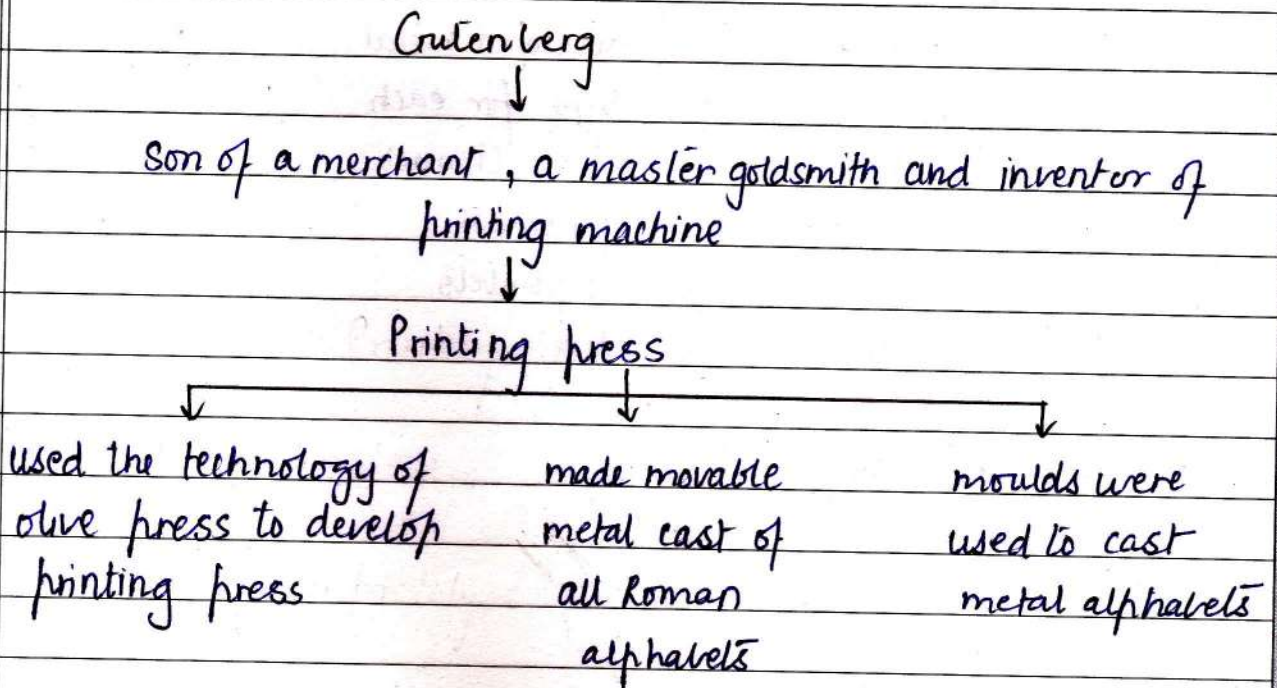 Gutenberg
son of a merchant, a master goldsmith and inventor of
printing machine
Printing press
used the technology of
olive press to develop
printing press
made movable
metal cast of
all Roman
alphabets
moulds were
used to cast
metal alphabets